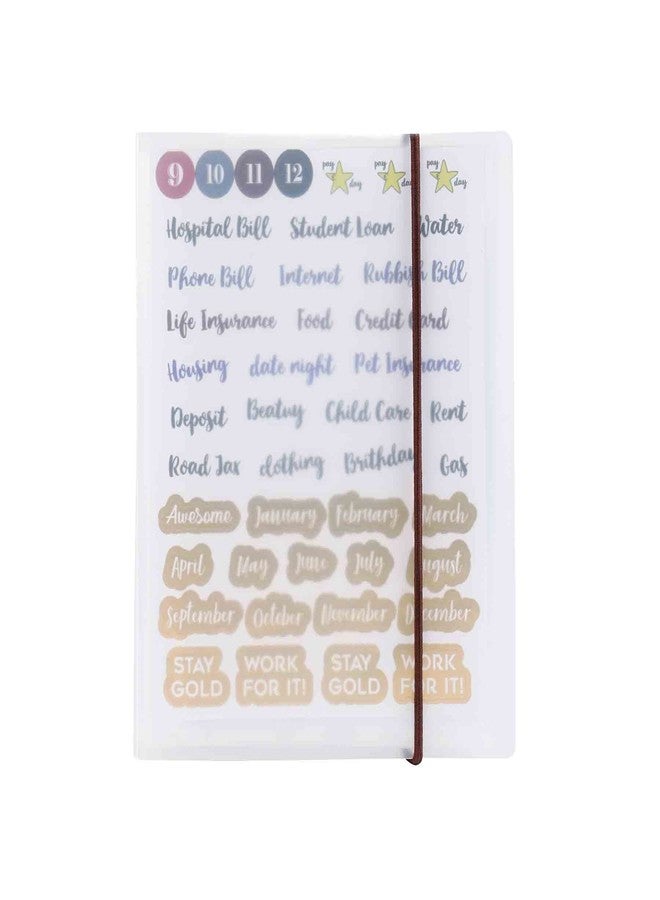 9 10 11 12 pay day pay day pay day
Hospital Bill Student Loan Water
Phone Bill Internet Rubbish Bill
Life Insurance Food Credit Card
Housing date night Pet Insurance
Deposit Beatuy Child Care Rent
Road Tax clothing Brithday Gas
Awesome January February March
April May June July August
September October November December
STAY WORK STAY WORK
GOLD FOR IT! GOLD FOR IT!